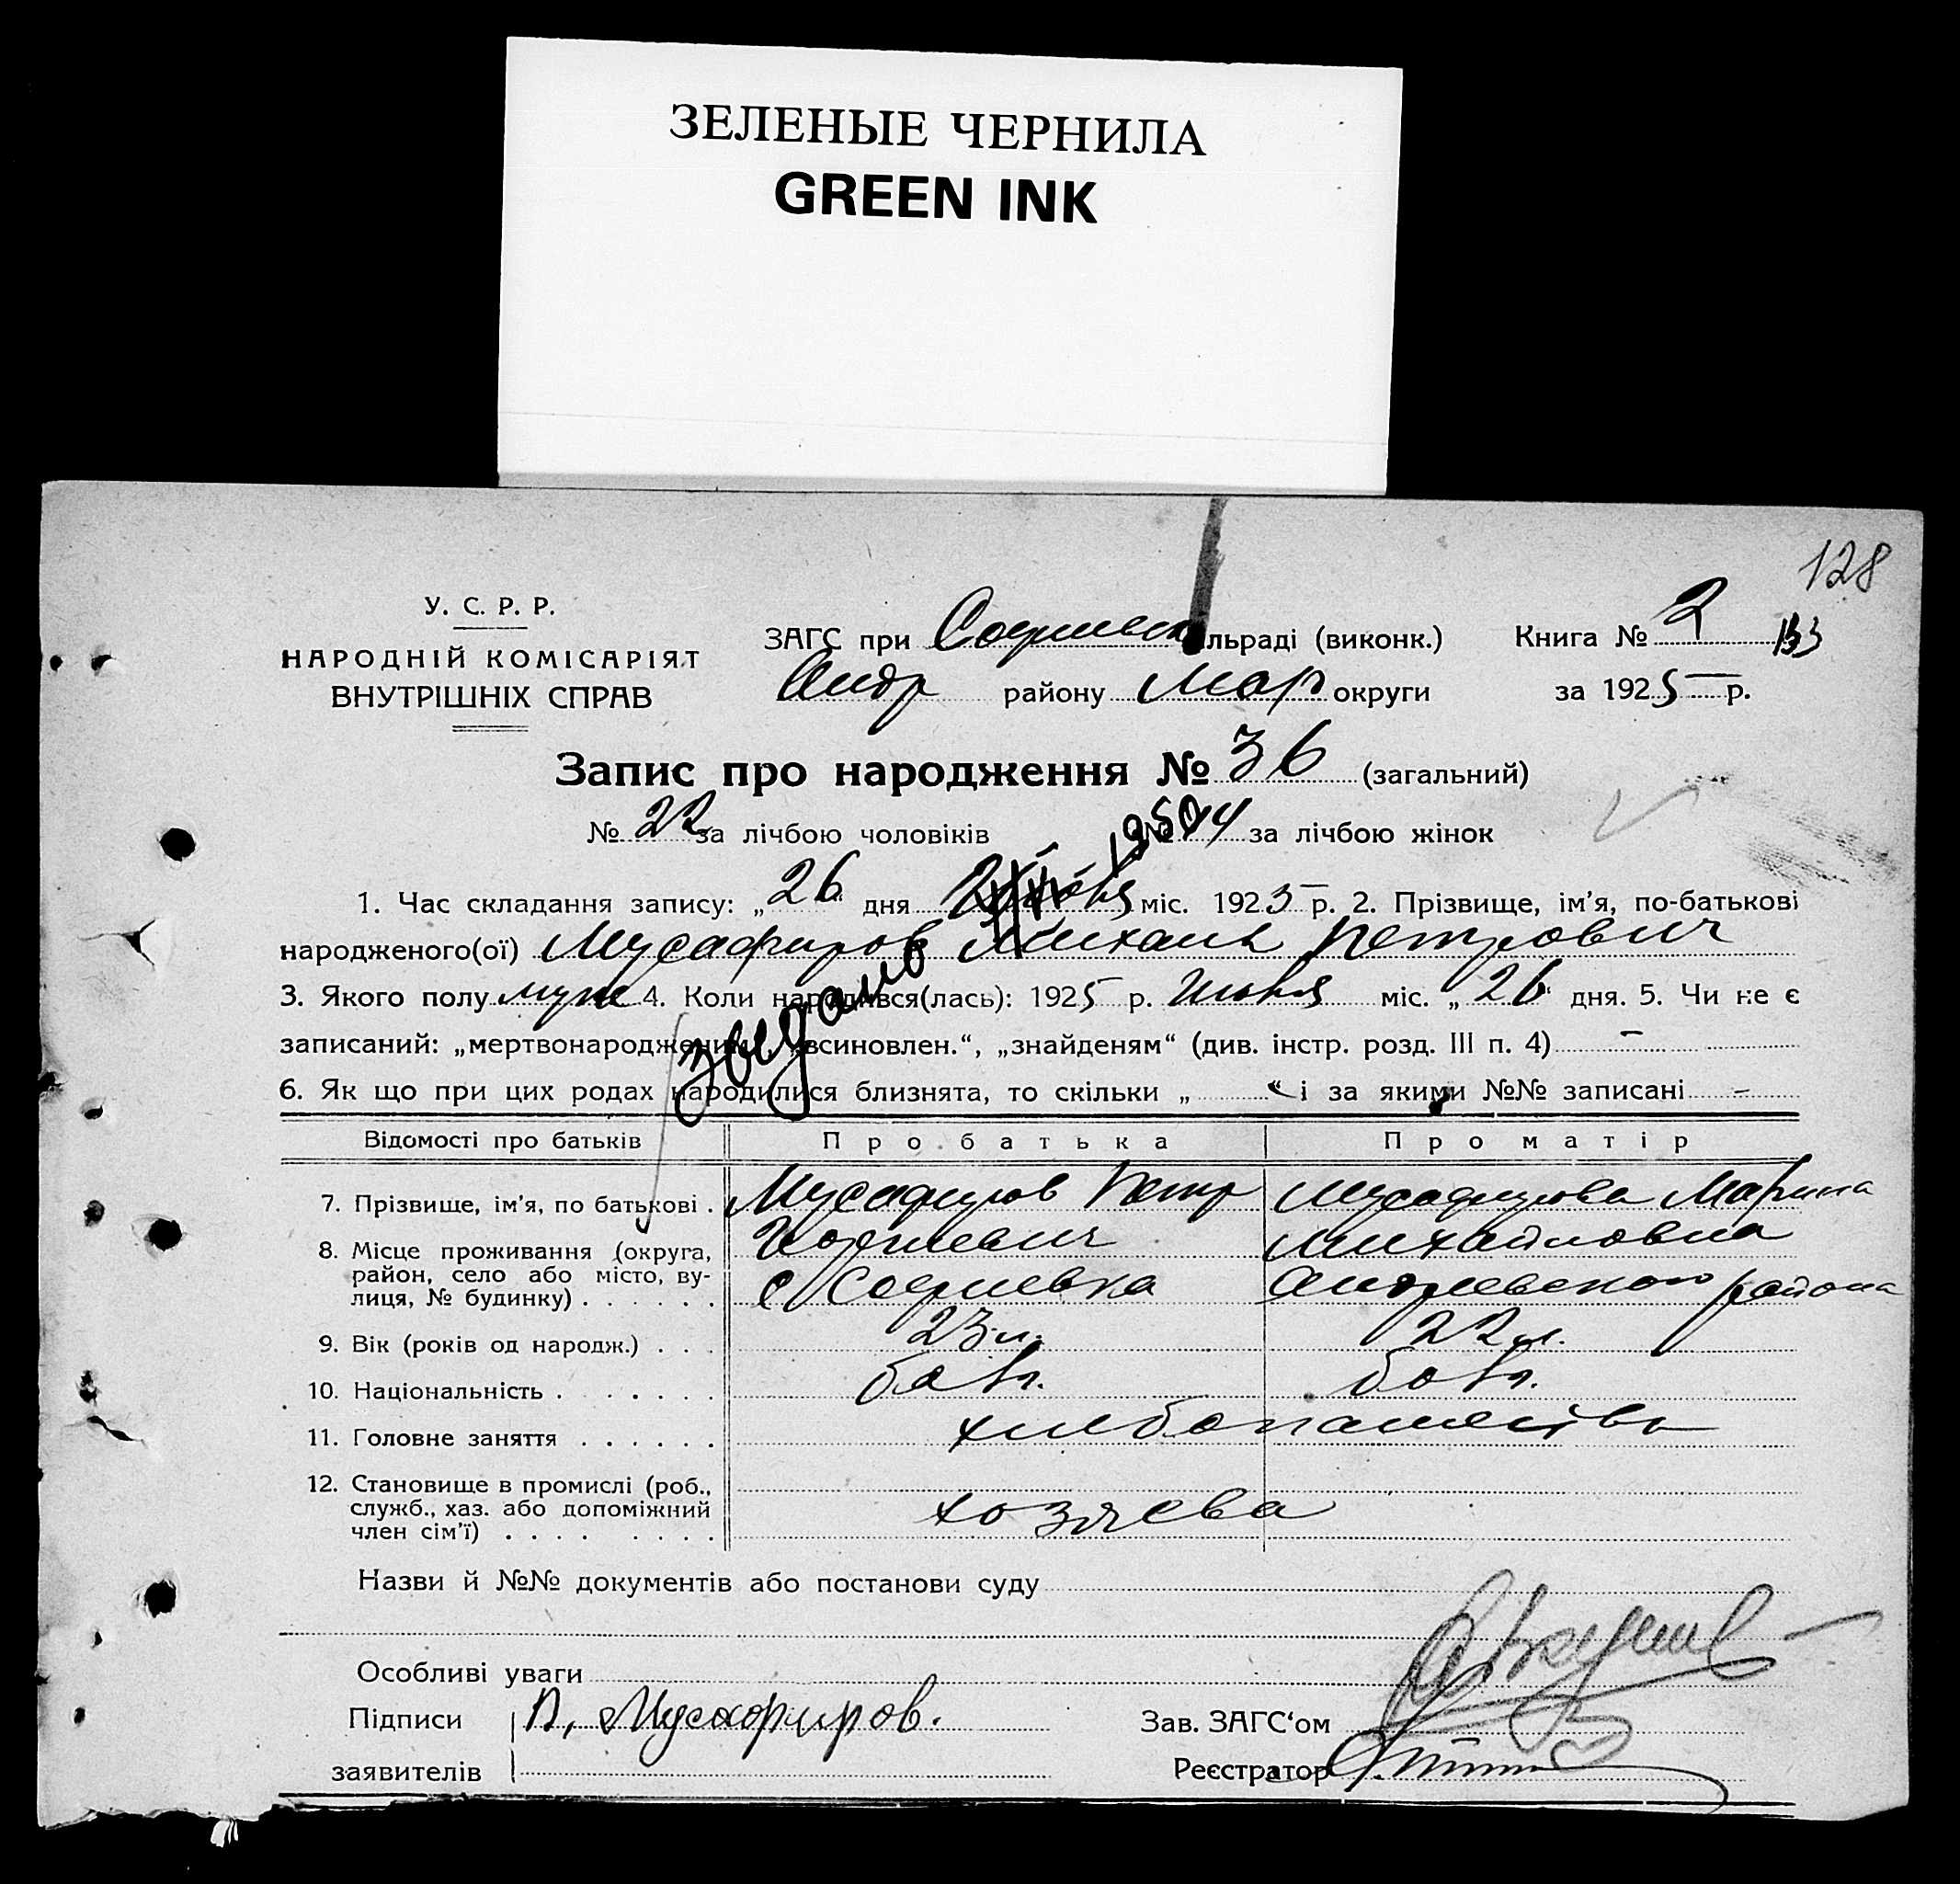 ЗЕЛЕНЫЕ ЧЕРНИЛА
GREEN INK
128
У. С. Р. Р.
НАРОДНІЙ КОМІСАРІЯТ
ВНУТРІШНІХ СПРАВ
ЗАГС при Софиевск льраді (виконк.) Книга № 2 133
Андр району Мар округи за 1925 р.
Запис про народження № 36 (загальний)
№ 22 за лічбою чоловіків № 14 за лічбою жінок
1. Час складання запису: „ 26 “ дня міс. 1925 р. 2. Прізвище, ім’я, по-батькові
народженого(ої) Мусафиров Михаил Петрович
3. Якого полу муж 4. Коли народився(лась): 1925 р. Июня міс. „ 26 “ дня. 5. Чи не є
записаний: „мертвонароджений“, „всиновлен.“, „знайденям“ (див. інстр. розд. III п. 4) –
6. Як що при цих родах народилися близнята, то скільки „ “ і за якими №№ записані –
Відомості про батьків Про батька Про матір
7. Прізвище, ім’я, по батькові . Мусафиров Петр Мусафирова Марина
Юрьевич Михайловна
8. Місце проживання (округа,
район, село або місто, ву-
лиця, № будинку) . . . . . . с Софиевка Андреевского района
9. Вік (років од народж.) . . . 23 л. 22 л.
10. Національність . . . . . . . болг. болг.
11. Головне заняття . . . . . . хлебопашество
12. Становище в промислі (роб.,
служб., хаз. або допоміжний
член сім’ї) . . . . . . . . хозяева
Назви й №№ документів або постанови суду
Особливі уваги
Підписи П. Мусафиров.
заявителів
Зав. ЗАГС‘ом
Реєстратор